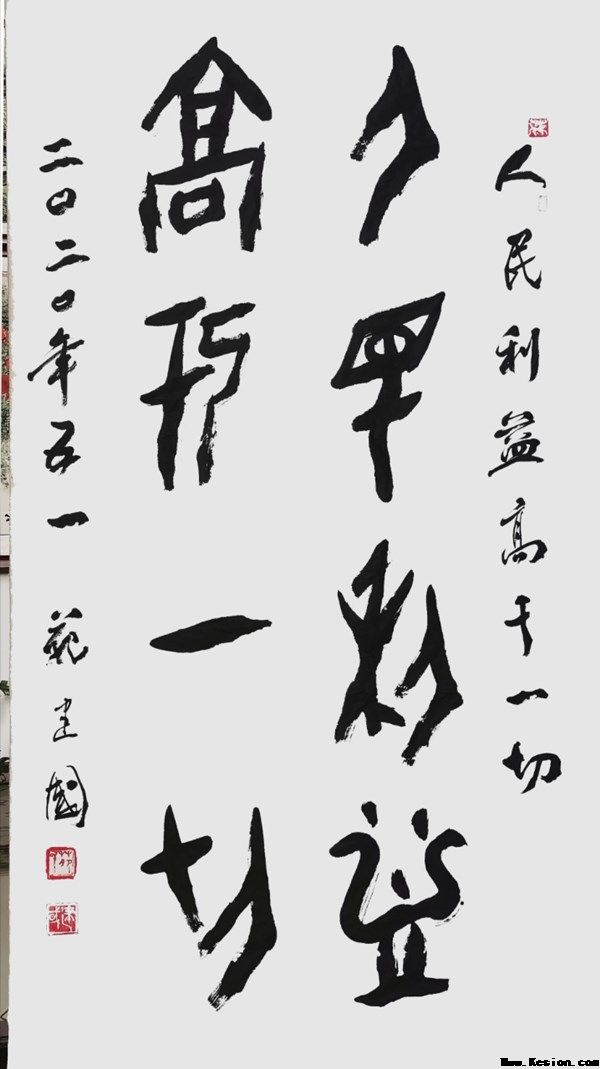 人民利益高于一切
人民利益
高于一切
二〇二〇年五一 范建國
Www.Kesion.com